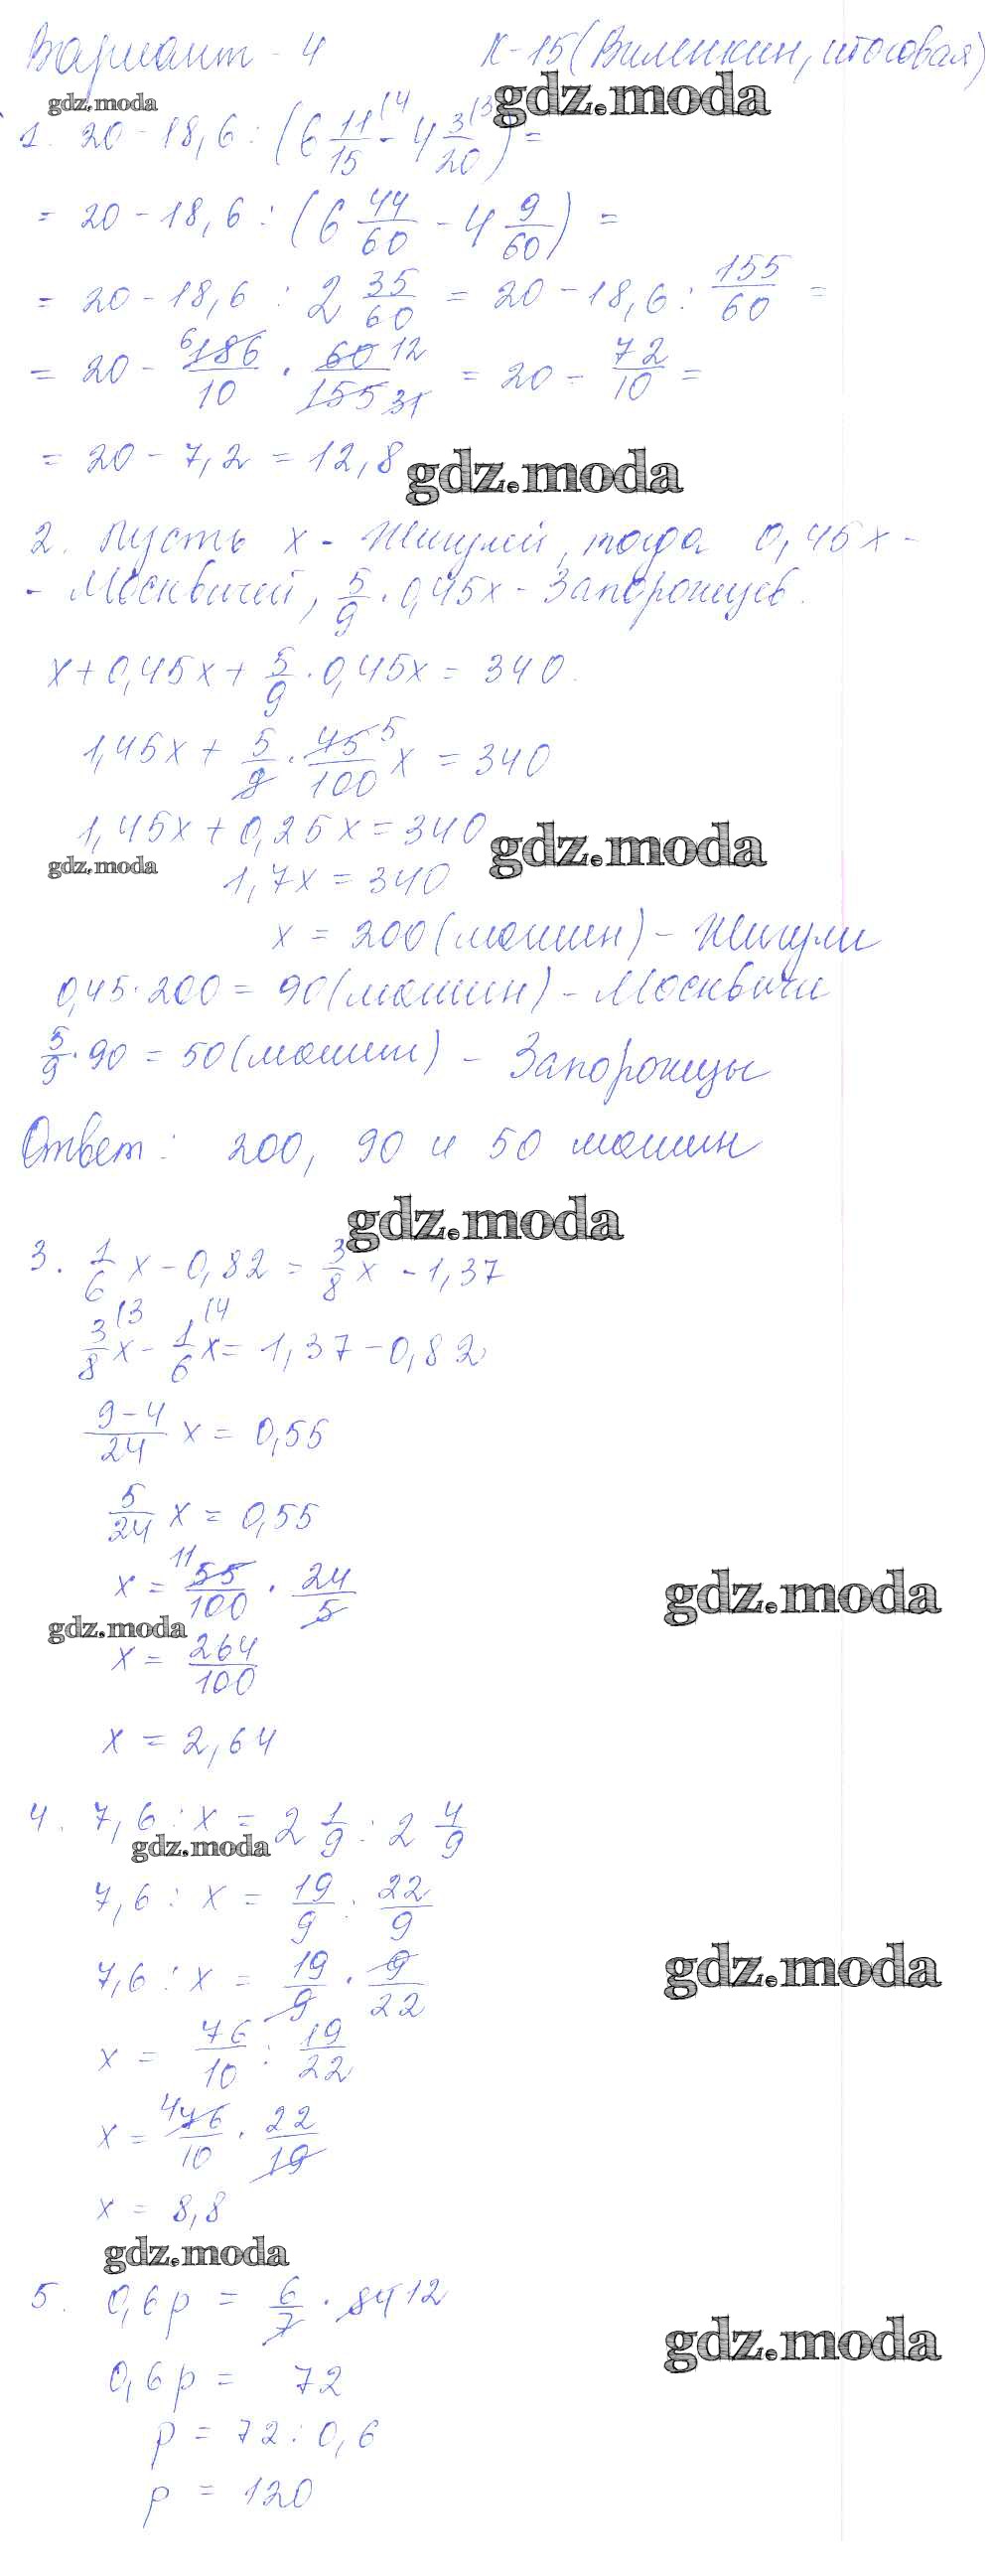 Вариант - 4 К-15 (Виленкин, итоговая)
gdz.moda gdz.moda
1. 20 - 18,6 : (6 11/15 (4 - 4 3/20 (3) =
= 20 - 18,6 : (6 44/60 - 4 9/60) =
= 20 - 18,6 : 2 35/60 = 20 - 18,6 : 155/60 =
= 20 - 6 186/10 · 60 12/155 31 = 20 - 72/10 =
= 20 - 7,2 = 12,8
gdz.moda
2. Пусть x - Жигулей, тогда 0,45x -
- Москвичей, 5/9 · 0,45x - Запорожцев.
x + 0,45x + 5/9 · 0,45x = 340.
1,45x + 5/9 · 45 5/100 x = 340
1,45x + 0,25x = 340
gdz.moda
gdz.moda
1,7x = 340
x = 200 (машин) - Жигули
0,45 · 200 = 90 (машин) - Москвичи
5/9 · 90 = 50 (машин) - Запорожцы
Ответ: 200, 90 и 50 машин
gdz.moda
3. 1/6 x - 0,82 = 3/8 x - 1,37
3/8 (3 x - 1/6 (4 x = 1,37 - 0,82
9-4/24 x = 0,55
5/24 x = 0,55
x = 11 55/100 · 24/5
gdz.moda
gdz.moda
x = 264/100
x = 2,64
4. 7,6 : x = 2 1/9 : 2 4/9
gdz.moda
7,6 : x = 19/9 : 22/9
7,6 : x = 19/9 · 9/22
gdz.moda
x = 76/10 : 19/22
x = 4 76/10 · 22/19
x = 8,8
gdz.moda
5. 0,6p = 6/7 · 84 12
gdz.moda
0,6p = 72
p = 72 : 0,6
p = 120